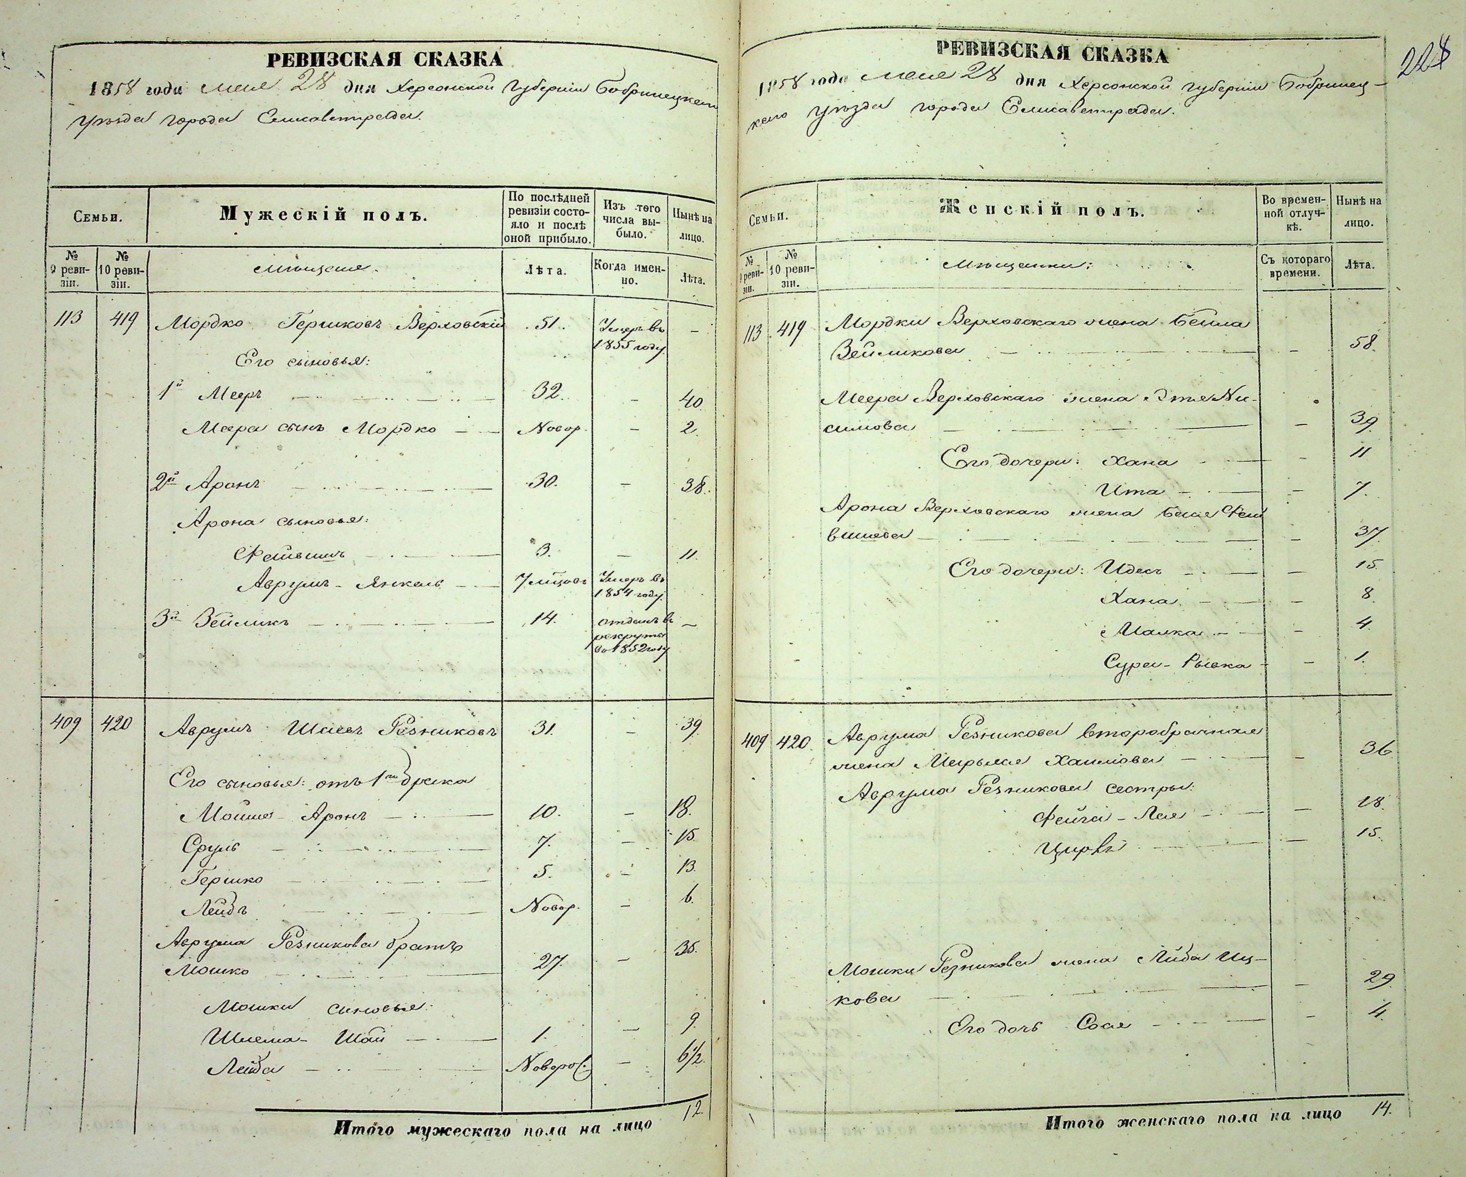 РЕВИЗСКАЯ СКАЗКА
1858 года мая 28 дня Херсонской Губернии Бобринецкаго
уѣзда города Елисаветграда.
Семьи.
Мужескій полъ.
По послѣдней ревизіи состояло и послѣ оной прибыло.
Изъ того числа выбыло.
Нынѣ на лицо.
№ 9 ревизіи.
№ 10 ревизіи.
Мѣщане.
Лѣта.
Когда именно.
Лѣта.
113 419 Мордко Гершковъ Верховскій 51. Умеръ въ 1855 году —
Его сыновья:
1й Мееръ 32. — 40.
Меера сынъ Мордко Новор. — 2.
2й Аронъ 30. — 38.
Арона сыновья:
Файвишъ 3. — 11.
Аврумъ-Янкель 7 мѣсяц. Умеръ въ 1854 году
3й Зейликъ 14. отданъ въ рекруты въ 1852 году —
409 420 Аврумъ Шаевъ Резниковъ 31. — 39.
Его сыновья: отъ 1го брака
Мойше-Аронъ 10. — 18.
Сруль 7. — 15.
Гершко 5. — 13.
Лейбъ Новор. — 6.
Аврума Резникова братъ
Мошко 27. — 35.
Мошки сыновья:
Шлема-Шай 1. — 9.
Лейба Новорож. — 6½.
Итого мужескаго пола на лицо 12.
РЕВИЗСКАЯ СКАЗКА
228
1858 года мая 28 дня Херсонской Губернии Бобринец-
каго уѣзда города Елисаветграда.
Семьи.
Женскій полъ.
Во временной отлучкѣ.
Нынѣ на лицо.
№ 9 ревизіи.
№ 10 ревизіи.
Мѣщанки:
Съ котораго времени.
Лѣта.
113 419 Мордки Верховскаго жена Бейла
Зейликова — 58.
Меера Верховскаго жена Этя Ни-
симова — 39.
Его дочери: Хана — 11
Ита — 7.
Арона Верховскаго жена Бася Фай
вишева — 37
Его дочери: Идесъ — 15.
Хана — 8.
Малка — 4
Сура-Рывка — 1.
409 420 Аврума Резникова второбрачная
жена Мирьмя Хаимова — 36
Аврума Резникова сестры:
Фейга-Лея — 18.
Цирвъ — 15.
Мошки Резникова жена Либа Иц-
кова — 29
Его дочь Сося — 4.
Итого женскаго пола на лицо 14.